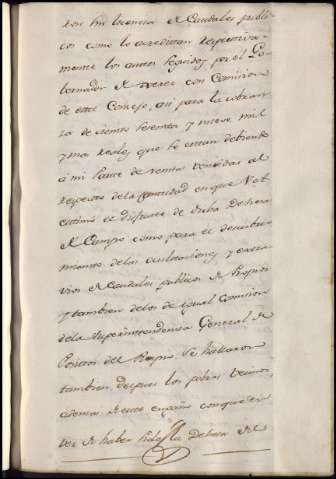 con mi licencia de Caudales publi
cos como lo acreditan respectiva
mente los autos seguidos por el Go
bernador de con Comision
de este Consejo, asi para la cobran
za de ciento setenta y nueve mil
y mas reales que le estan debiendo
á mi Parte de rentas vencidas al
respecto de la cantidad en que V.
estimó el disfrute de dicha Dehesa
del Campo como para el descubri
miento de las ocultaciones y extra
vios de Caudales publicos de Propios
y tambien de los de igual comision
de la Superintendencia General de
Positos del Reyno. Se hallaron
tambien despues los pobres vecinos,
ademas de estos engaños con que en
vez de haber sido la Dehesa del